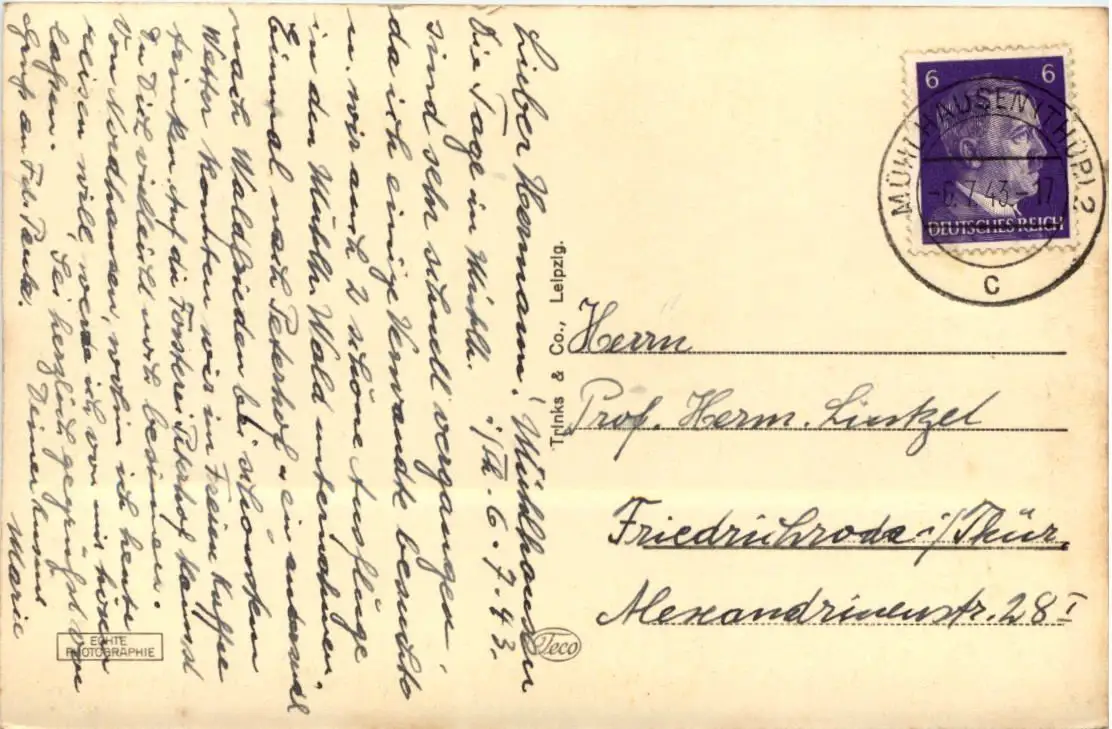 Lieber Hermann! Mühlhausen
i/Th. 6.7.43.
Die Tage in Mühlh.
sind sehr schnell vergangen,
da ich einige Verwandte besuchte
u. wir auch 2 schöne Ausflüge
in den Mühlh. Wald unternahmen.
Einmal nach Peterhof u. ein andermal
nach Waldfrieden bei schönstem
Wetter konnten wir im Freien Kaffee
trinken. Auf die Försterei Peterhof kannst
Du Dich vielleicht noch besinnen.
Von Nordhausen, wohin ich heute
reisen will, werde ich von mir hören
laßen. Sei herzlich gegrüßt von
Deiner
Marie
Gruß an Frl.
Trinks & Co., Leipzig.
ECHTE
PHOTOGRAPHIE
Teco
6 6
DEUTSCHES REICH
MÜHLHAUSEN (THÜR) 2
-6.7.43-17
c
Herrn
Prof. Herm. Lintzel
Friedrichroda i/Thür.
Alexandrinenstr. 28 I